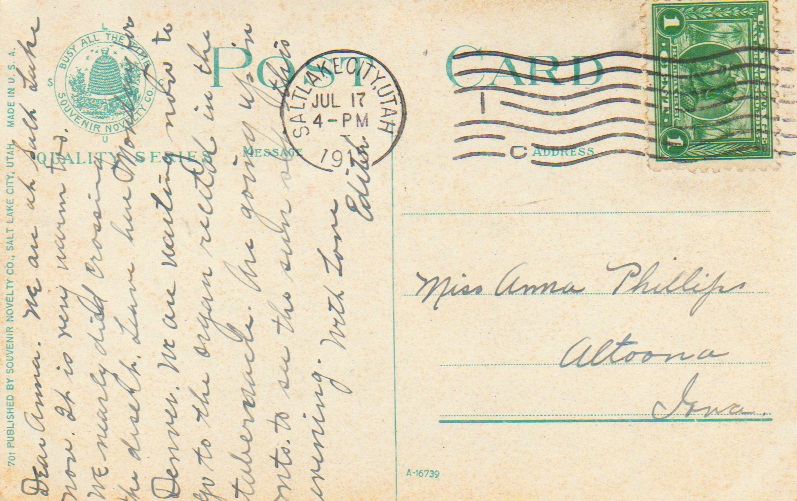 POST CARD
BUSY ALL THE TIME
SOUVENIR NOVELTY CO.
S L C U
QUALITY SERIES
MESSAGE
ADDRESS
SALT LAKE CITY, UTAH
JUL 17
4-PM
191
1 1
Dear Anna. We are at Salt Lake
now. It is very warm too.
We nearly died crossing
the desert. Leave here Monday for
Denver. We are waiting now to
go to the organ recital in the
tabernacle. Are going up in
mts. to see the sun set this
evening. With Love
Edith
Miss Anna Phillips
Altoona
Iowa.
701 PUBLISHED BY SOUVENIR NOVELTY CO., SALT LAKE CITY, UTAH. MADE IN U. S. A.
A-16739